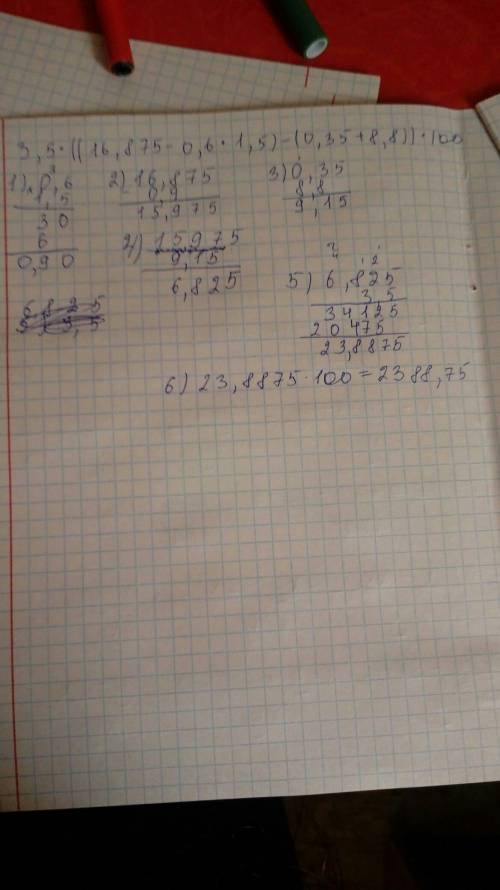 3,5·((16,875-0,6·1,5)-(0,35+8,8))·100
1) 0,6 2) 16,875 3) 0,35
1,5 0,9 8,8
30 15,975 9,15
6
0,90
4) 15,975 5) 6,825
9,15 3,5
6,825 34125
20475
23,8875
6) 23,8875·100=2388,75